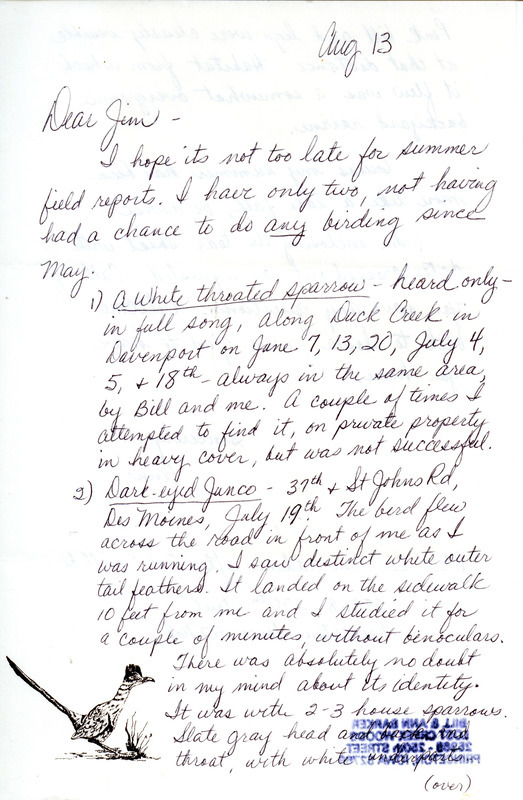 Aug 13
Dear Jim -
I hope its not too late for summer
field reports. I have only two, not having
had a chance to do any birding since
May.
1) a White throated sparrow - heard only -
in full song, along Duck Creek in
Davenport on June 7, 13, 20, July 4,
5, + 18th - always in the same area,
by Bill and me. A couple of times I
attempted to find it, on private property
in heavy cover, but was not successful.
2) Dark-eyed Junco - 37th + St Johns Rd,
Des Moines, July 19th. The bird flew
across the road in front of me as I
was running. I saw distinct white outer
tail feathers. It landed on the sidewalk
10 feet from me and I studied it for
a couple of minutes, without binoculars.
There was absolutely no doubt
in my mind about its identity.
It was with 2-3 house sparrows.
Slate gray head and back and
throat, with white underparts.
(over)
BILL & ANN BARKER